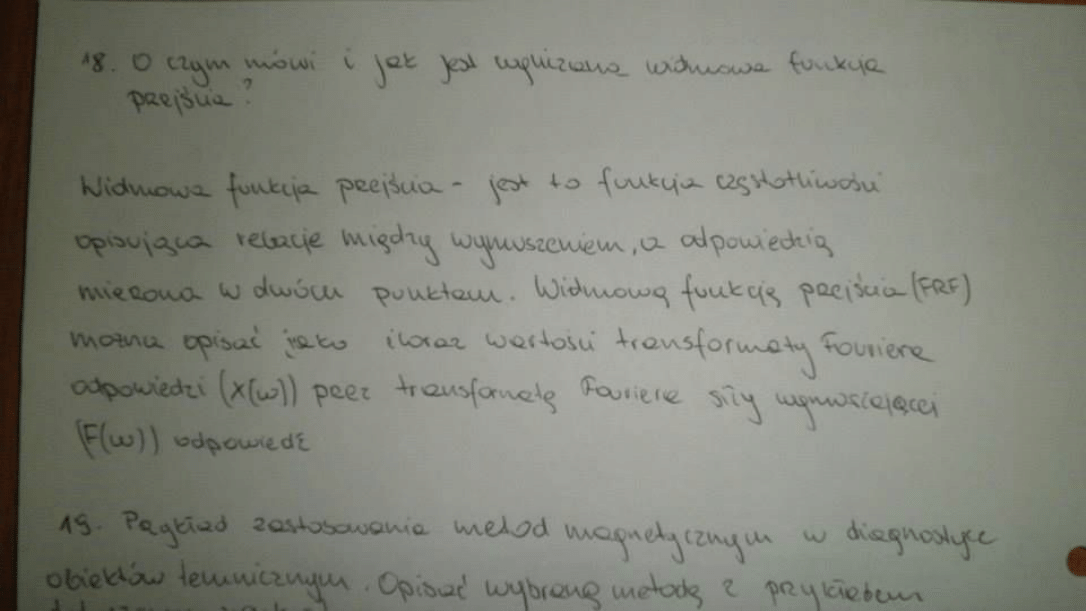 18. O czym mówi i jak jest wyliczana widmowa funkcja
przejścia?
Widmowa funkcja przejścia - jest to funkcja częstotliwości
opisująca relacje między wymuszeniem, a odpowiedzią
mierzona w dwóch punktach. Widmową funkcję przejścia (FRF)
można opisać jako iloraz wartości transformaty Fouriera
odpowiedzi (X(ω)) przez transformatę Fouriera siły wymuszającej
(F(ω)) odpowiedź
19. Przykład zastosowania metod magnetycznych w diagnostyce
obiektów technicznych. Opisać wybraną metodę z przykładem